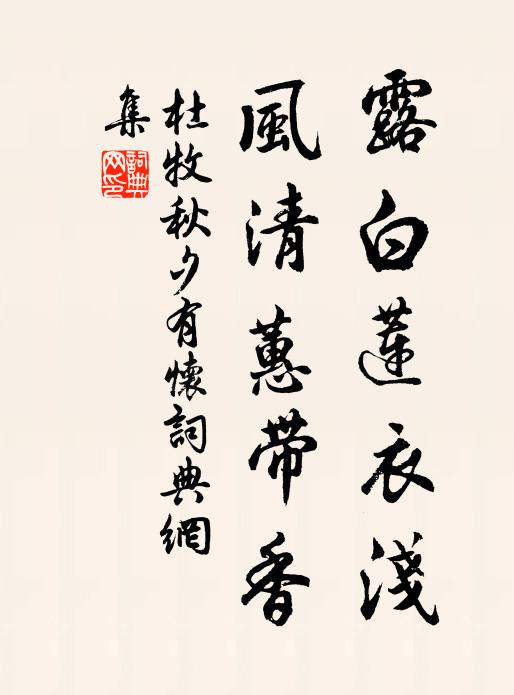 露白蓮衣淺
風清蕙帶香
杜牧秋夕有懷詞典網
集
詞典
网印